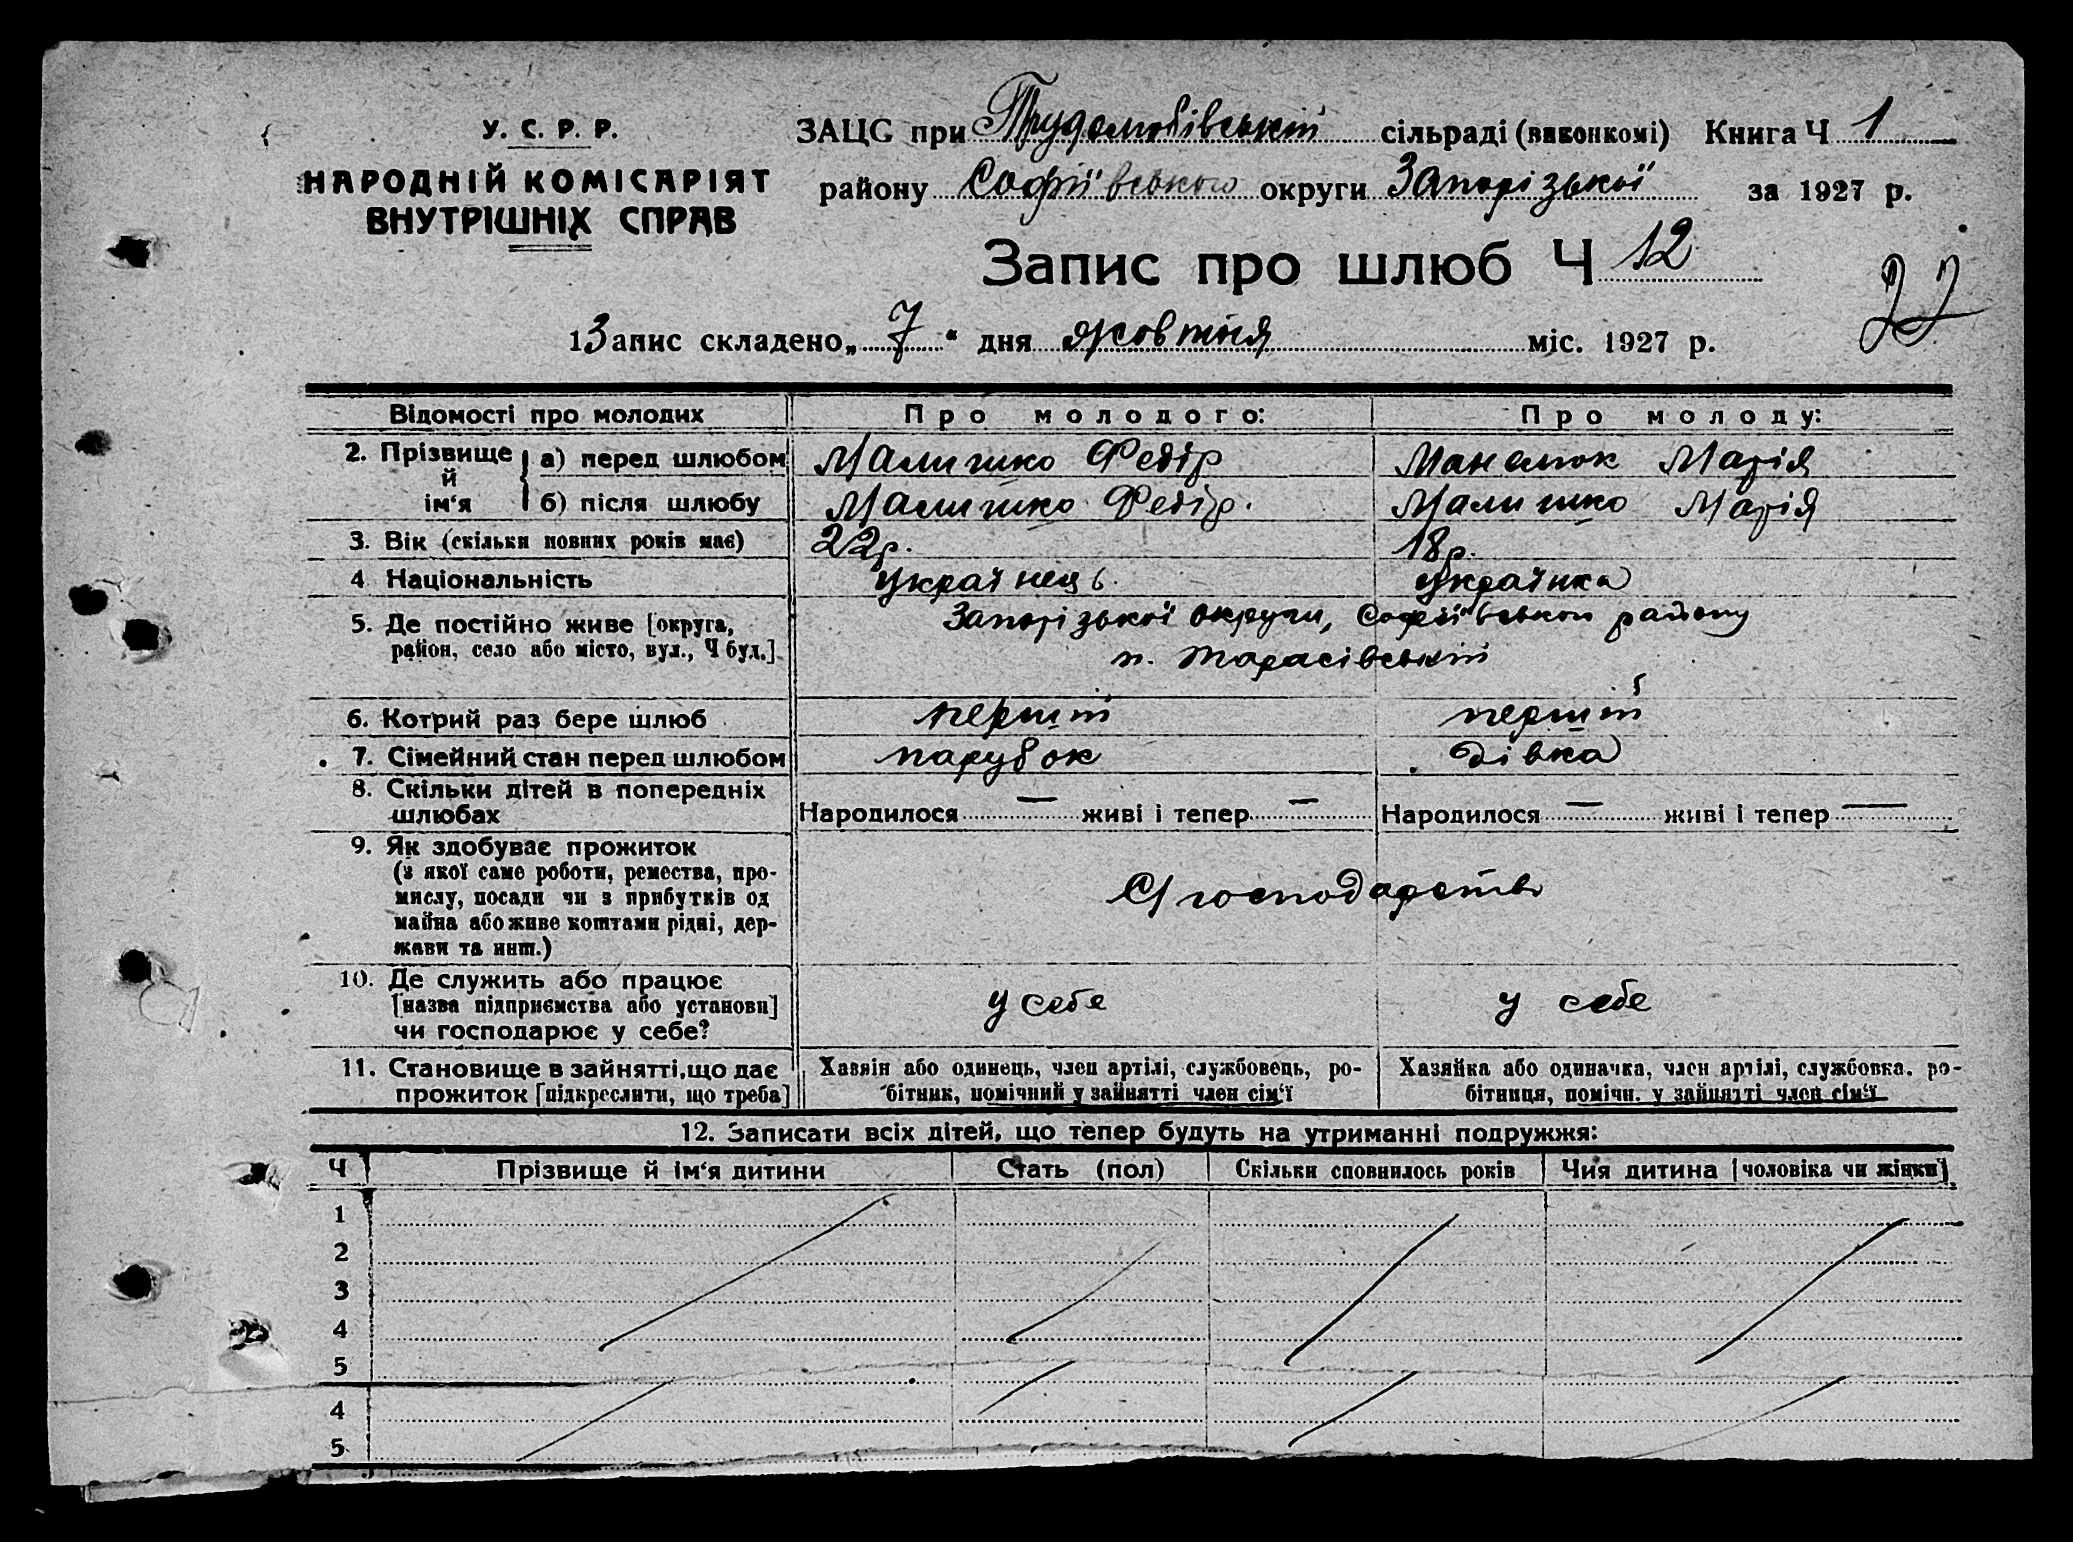 У. С. Р. Р.
НАРОДНІЙ КОМІСАРІЯТ
ВНУТРІШНІХ СПРАВ
ЗАЦС при Трудолюбівській сільраді (виконкомі) Книга Ч 1
району Софіївського округи Запорізької за 1927 р.
Запис про шлюб Ч 12
22
1 Запис складено „ 7 “ дня жовтня міс. 1927 р.
Відомості про молодих Про молодого: Про молоду:
2. Прізвище й ім‘я а) перед шлюбом Малишко Федір Манелюк Марія
б) після шлюбу Малишко Федір. Малишко Марія
3. Вік (скільки повних років має) 22р. 18р.
4 Національність Українець. Українка
5. Де постійно живе [округа, Запорізької округи, Софіївського району
район, село або місто, вул., Ч буд.] п. Тарасівській
6. Котрий раз бере шлюб перший перший
7. Сімейний стан перед шлюбом парубок дівка
8. Скільки дітей в попередніх
шлюбах Народилося — живі і тепер — Народилося — живі і тепер —
9. Як здобуває прожиток
(з якої саме роботи, ремества, про-
мислу, посади чи з прибутків од С/господарство
майна або живе коштами рідні, дер-
жави та инш.)
10. Де служить або працює
[назва підприємства або установи] у себе у себе
чи господарює у себе?
11. Становище в зайнятті, що дає Хазяін або одинець, член артілі, службовець, ро- Хазяйка або одиначка, член артілі, службовка. ро-
прожиток [підкреслити, що треба] бітник, помічний у зайнятті член сім‘ї бітниця, помічн. у зайнятті член сім‘ї
12. Записати всіх дітей, що тепер будуть на утриманні подружжя:
Ч Прізвище й ім‘я дитини Стать (пол) Скільки сповнилось років Чия дитина [чоловіка чи жінки]
1
2
3
4
5
4
5